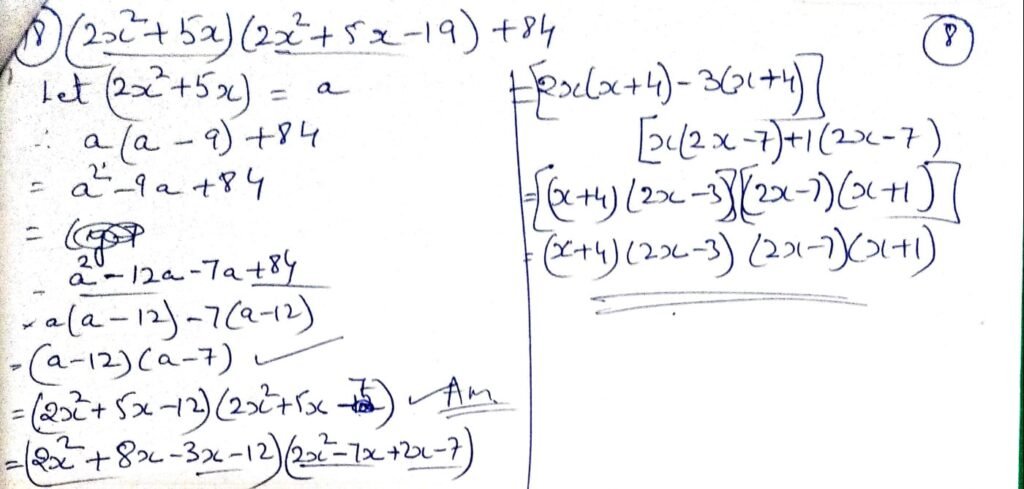 18) (2x² + 5x) (2x² + 5x - 19) + 84
Let (2x² + 5x) = a
∴ a (a - 9) + 84
= a² - 9a + 84
= (
- a² - 12a - 7a + 84
= a(a - 12) - 7(a - 12)
= (a - 12) (a - 7) ✓
= (2x² + 5x - 12) (2x² + 5x - 7) ✓ Ans
= (2x² + 8x - 3x - 12) (2x² - 7x + 2x - 7)
8
= [2x(x + 4) - 3(x + 4)]
[x(2x - 7) + 1(2x - 7)
= [(x + 4) (2x - 3)] [(2x - 7) (x + 1)]
= (x + 4) (2x - 3) (2x - 7) (x + 1)